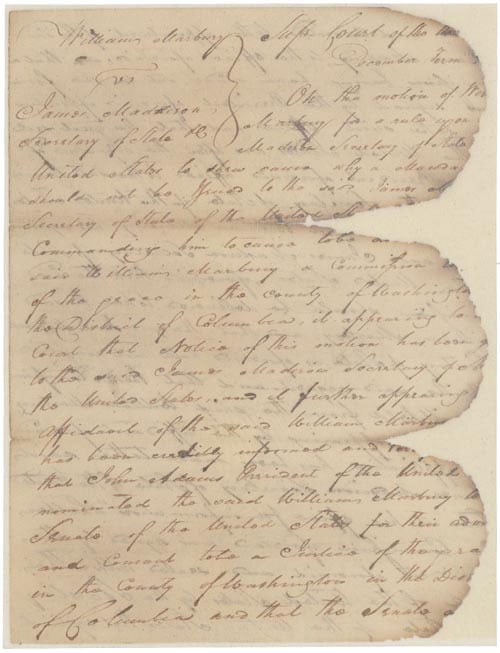 William Marbury Supr. Court of the
vs December Term
James Maddison On the motion of
Secretary of State &c Marbury for a rule upon
Madison Secretary of State
United States, to shew cause why a Manda
should not be Issued to the said James
Secretary of State of the United
Commanding him to cause to be
said William Marbury a Commission
of the peace in the county of Washington
the District of Columbia, it appearing to
Court that Notice of this motion has been
to the said James Maddison Secretary of
the United States, and it further appearing
Affidavit of the said William Marbu
has been credibly informed and
that John Adams President of the United
nominated the said William Marbury to
Senate of the United States for their adv
and Consent to be a Justice of the peace
in the County of Washington in the Dis
of Columbia and that the Senate